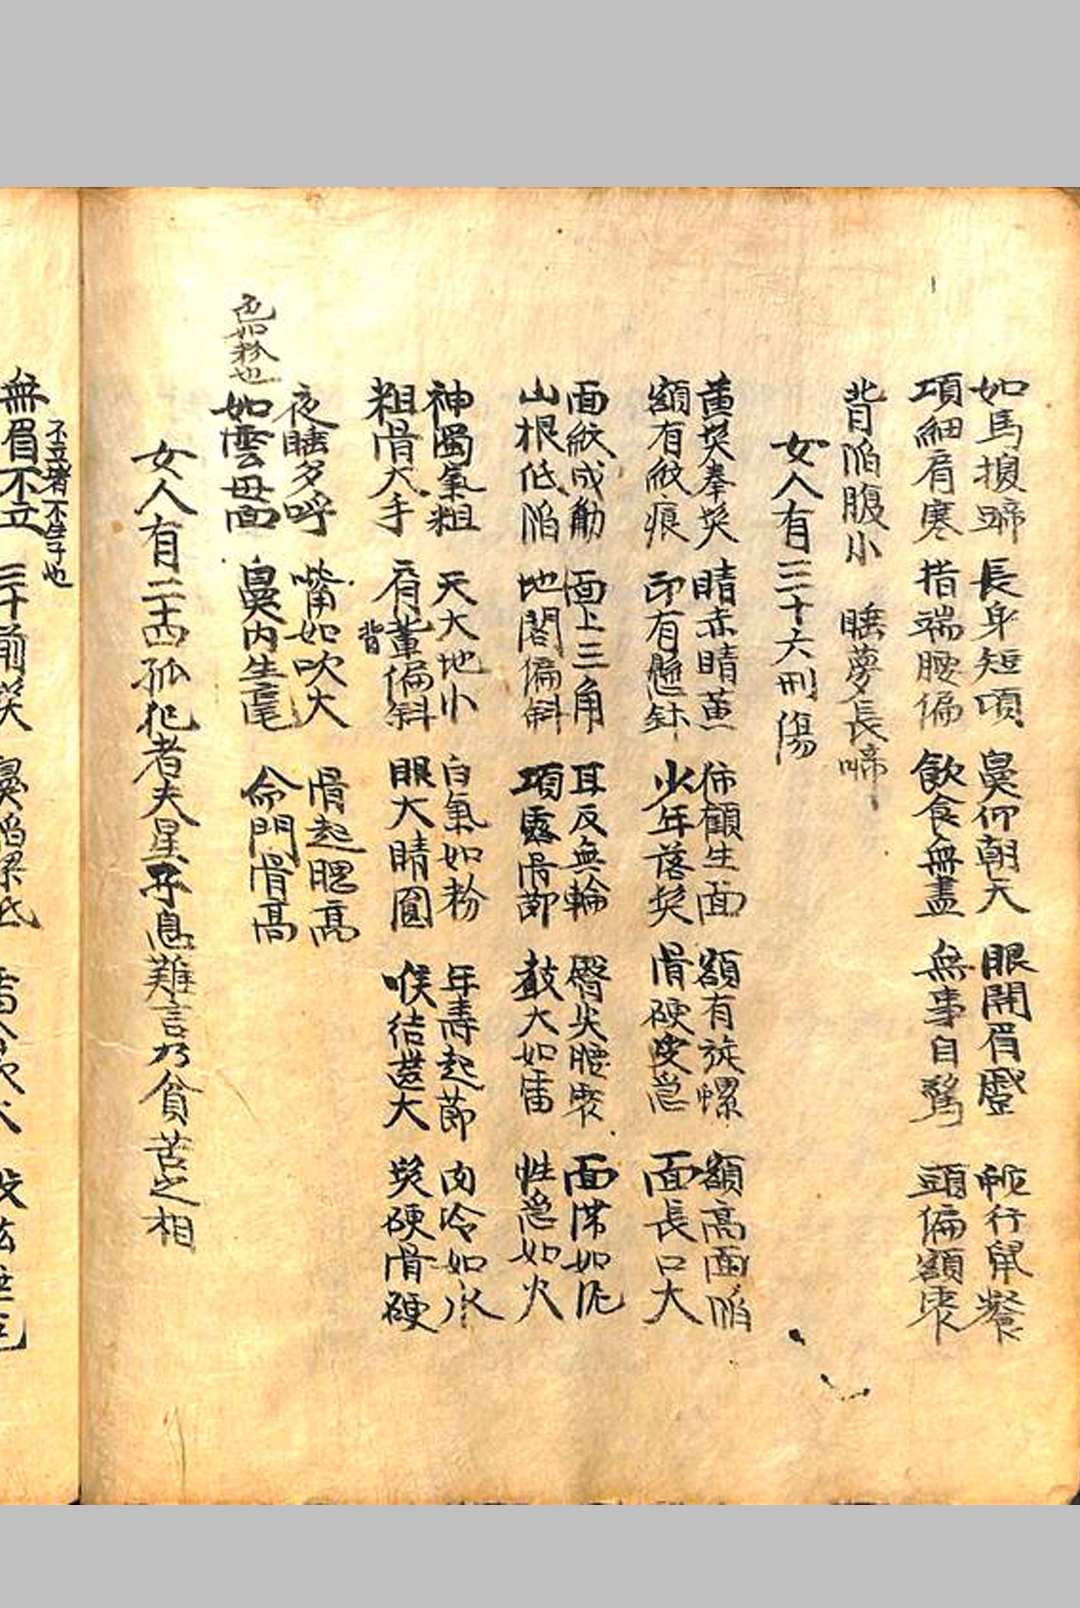 如馬換蹄 長身短項 鼻仰朝天 眼開眉蹙 蛇行鼠餐
項細肩寒 指端腰偏 飲食無盡 無事自驚 頭偏額窄
背陷腹小 睡夢長啼
女人有三十六刑傷
黃髮拳髮 睛赤睛黃 顧生面 額有旋螺 額高面陷
額有紋痕 印有懸針 少年落髮 骨硬皮急 面長口大
面紋成 面上三角 耳反無輪 臀尖腰窄 面滯如泥
山根低陷 地閣偏斜 項露骨節 聲大如雷 性急如火
神濁氣粗 天大地小 白氣如粉 年壽起節 肉冷如冰
粗骨大手 肩背偏斜 眼大睛圓 喉結 大 髮硬骨硬
夜睡多呼 嘴如吹火 骨起腮高
色如粉也
如雲母面 鼻内生毫 命門骨高
女人有二十四孤犯者夫星子息難言乃貧苦之相
不立者不生子也
無眉不立 三十前哭 鼻陷梁低